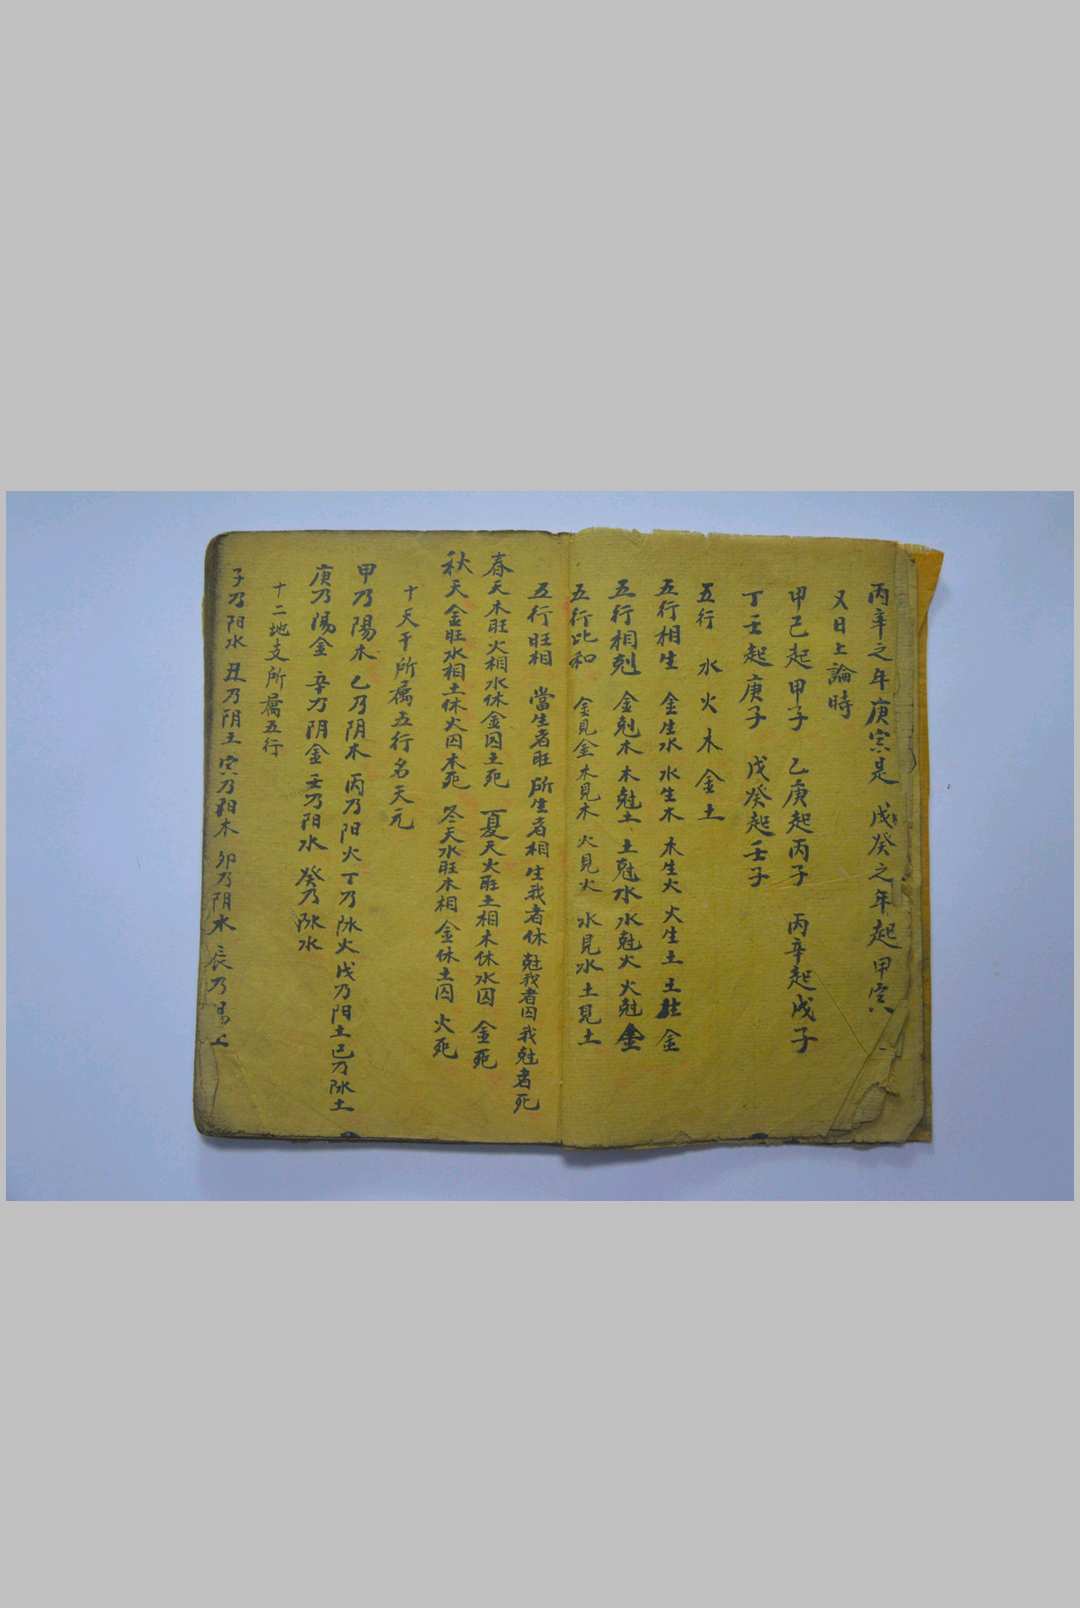 丙辛之年庚寅是 戊癸之年起甲寅
又日上論時
甲己起甲子 乙庚起丙子 丙辛起戊子
丁壬起庚子 戊癸起壬子
五行 水火木金土
五行相生 金生水 水生木 木生火 火生土 土生金
五行相剋 金剋木 木尅土 土尅水 水尅火 火尅金
五行比和 金見金 木見木 火見火 水見水 土見土
五行旺相 當生者旺 所生者相 生我者休 尅我者囚 我尅者死
春天木旺火相水休金囚土死 夏天火旺土相木休水囚 金死
秋天金旺水相土休火囚木死 冬天水旺木相 金休土囚 火死
十天干所属五行名天元
甲乃陽木 乙乃阴木 丙乃阳火 丁乃阴火 戊乃阳土 己乃阴土
庚乃陽金 辛乃阴金 壬乃阳水 癸乃阴水
十二地支所属五行
子乃阳水 丑乃阴土 寅乃阳木 卯乃阴木 辰乃易土